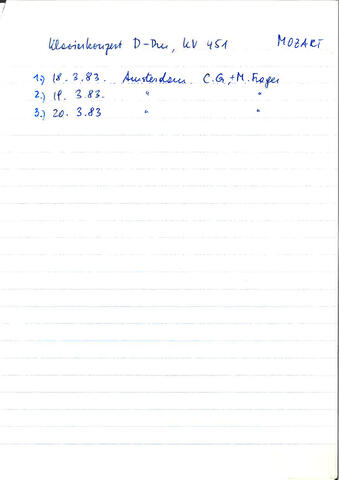 Klavierkonzert D-Dur, KV 451 MOZART
1.) 18. 3. 83. Amsterdam C.G. + M. Frager
2.) 19. 3. 83. " "
3.) 20. 3. 83 " "